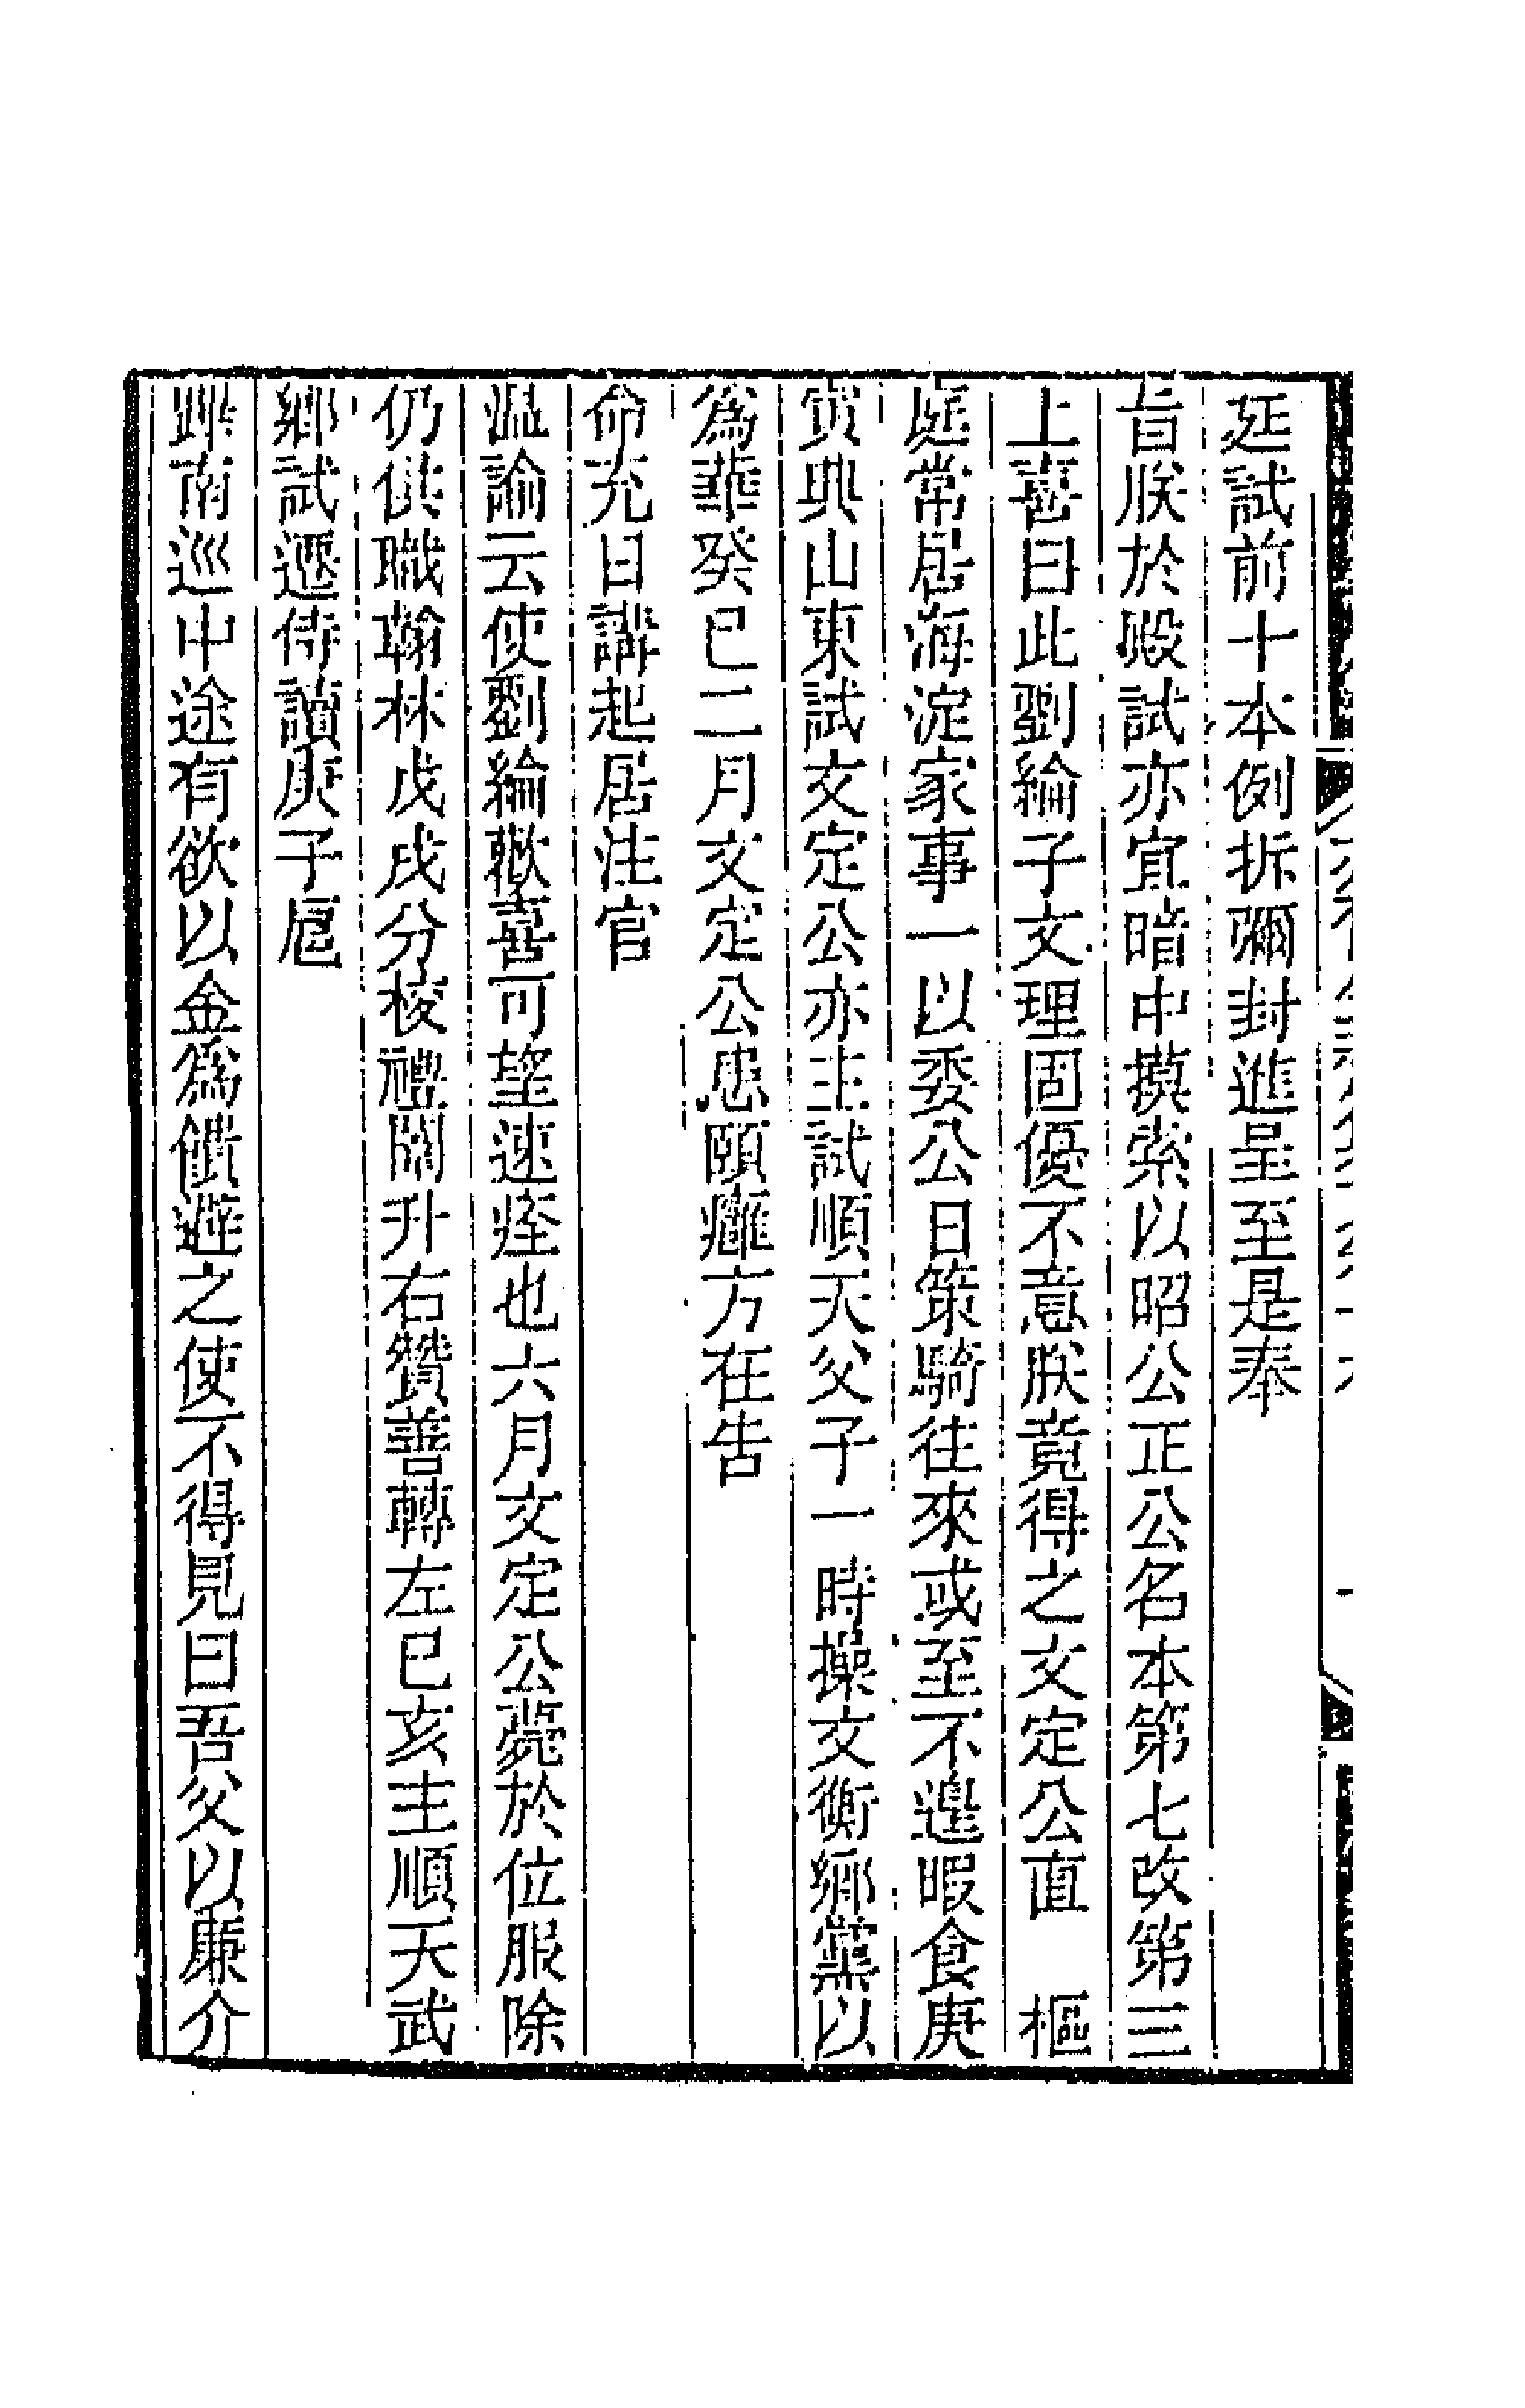 廷試前十本例拆彌封進呈至是奉
旨朕於殿試亦宜暗中摸索以昭公正公名本第七改第三
上喜曰此劉綸子文理固優不意朕竟得之文定公直　樞
庭常居海淀家事一以委公日策騎往來或至不遑暇食庚
寅典山東試文定公亦主試順天父子一時操文衡鄉黨以
為華癸巳二月文定公患頤癰方在告
命充日講起居注官
溫諭云使劉綸歡喜可望速痊也六月文定公薨於位服除
仍供職翰林戊戌分校禮闈升右贊善轉左己亥主順天武
鄉試遷侍讀庚子扈
蹕南巡中途有欲以金為饋遜之使不得見曰吾父以廉介